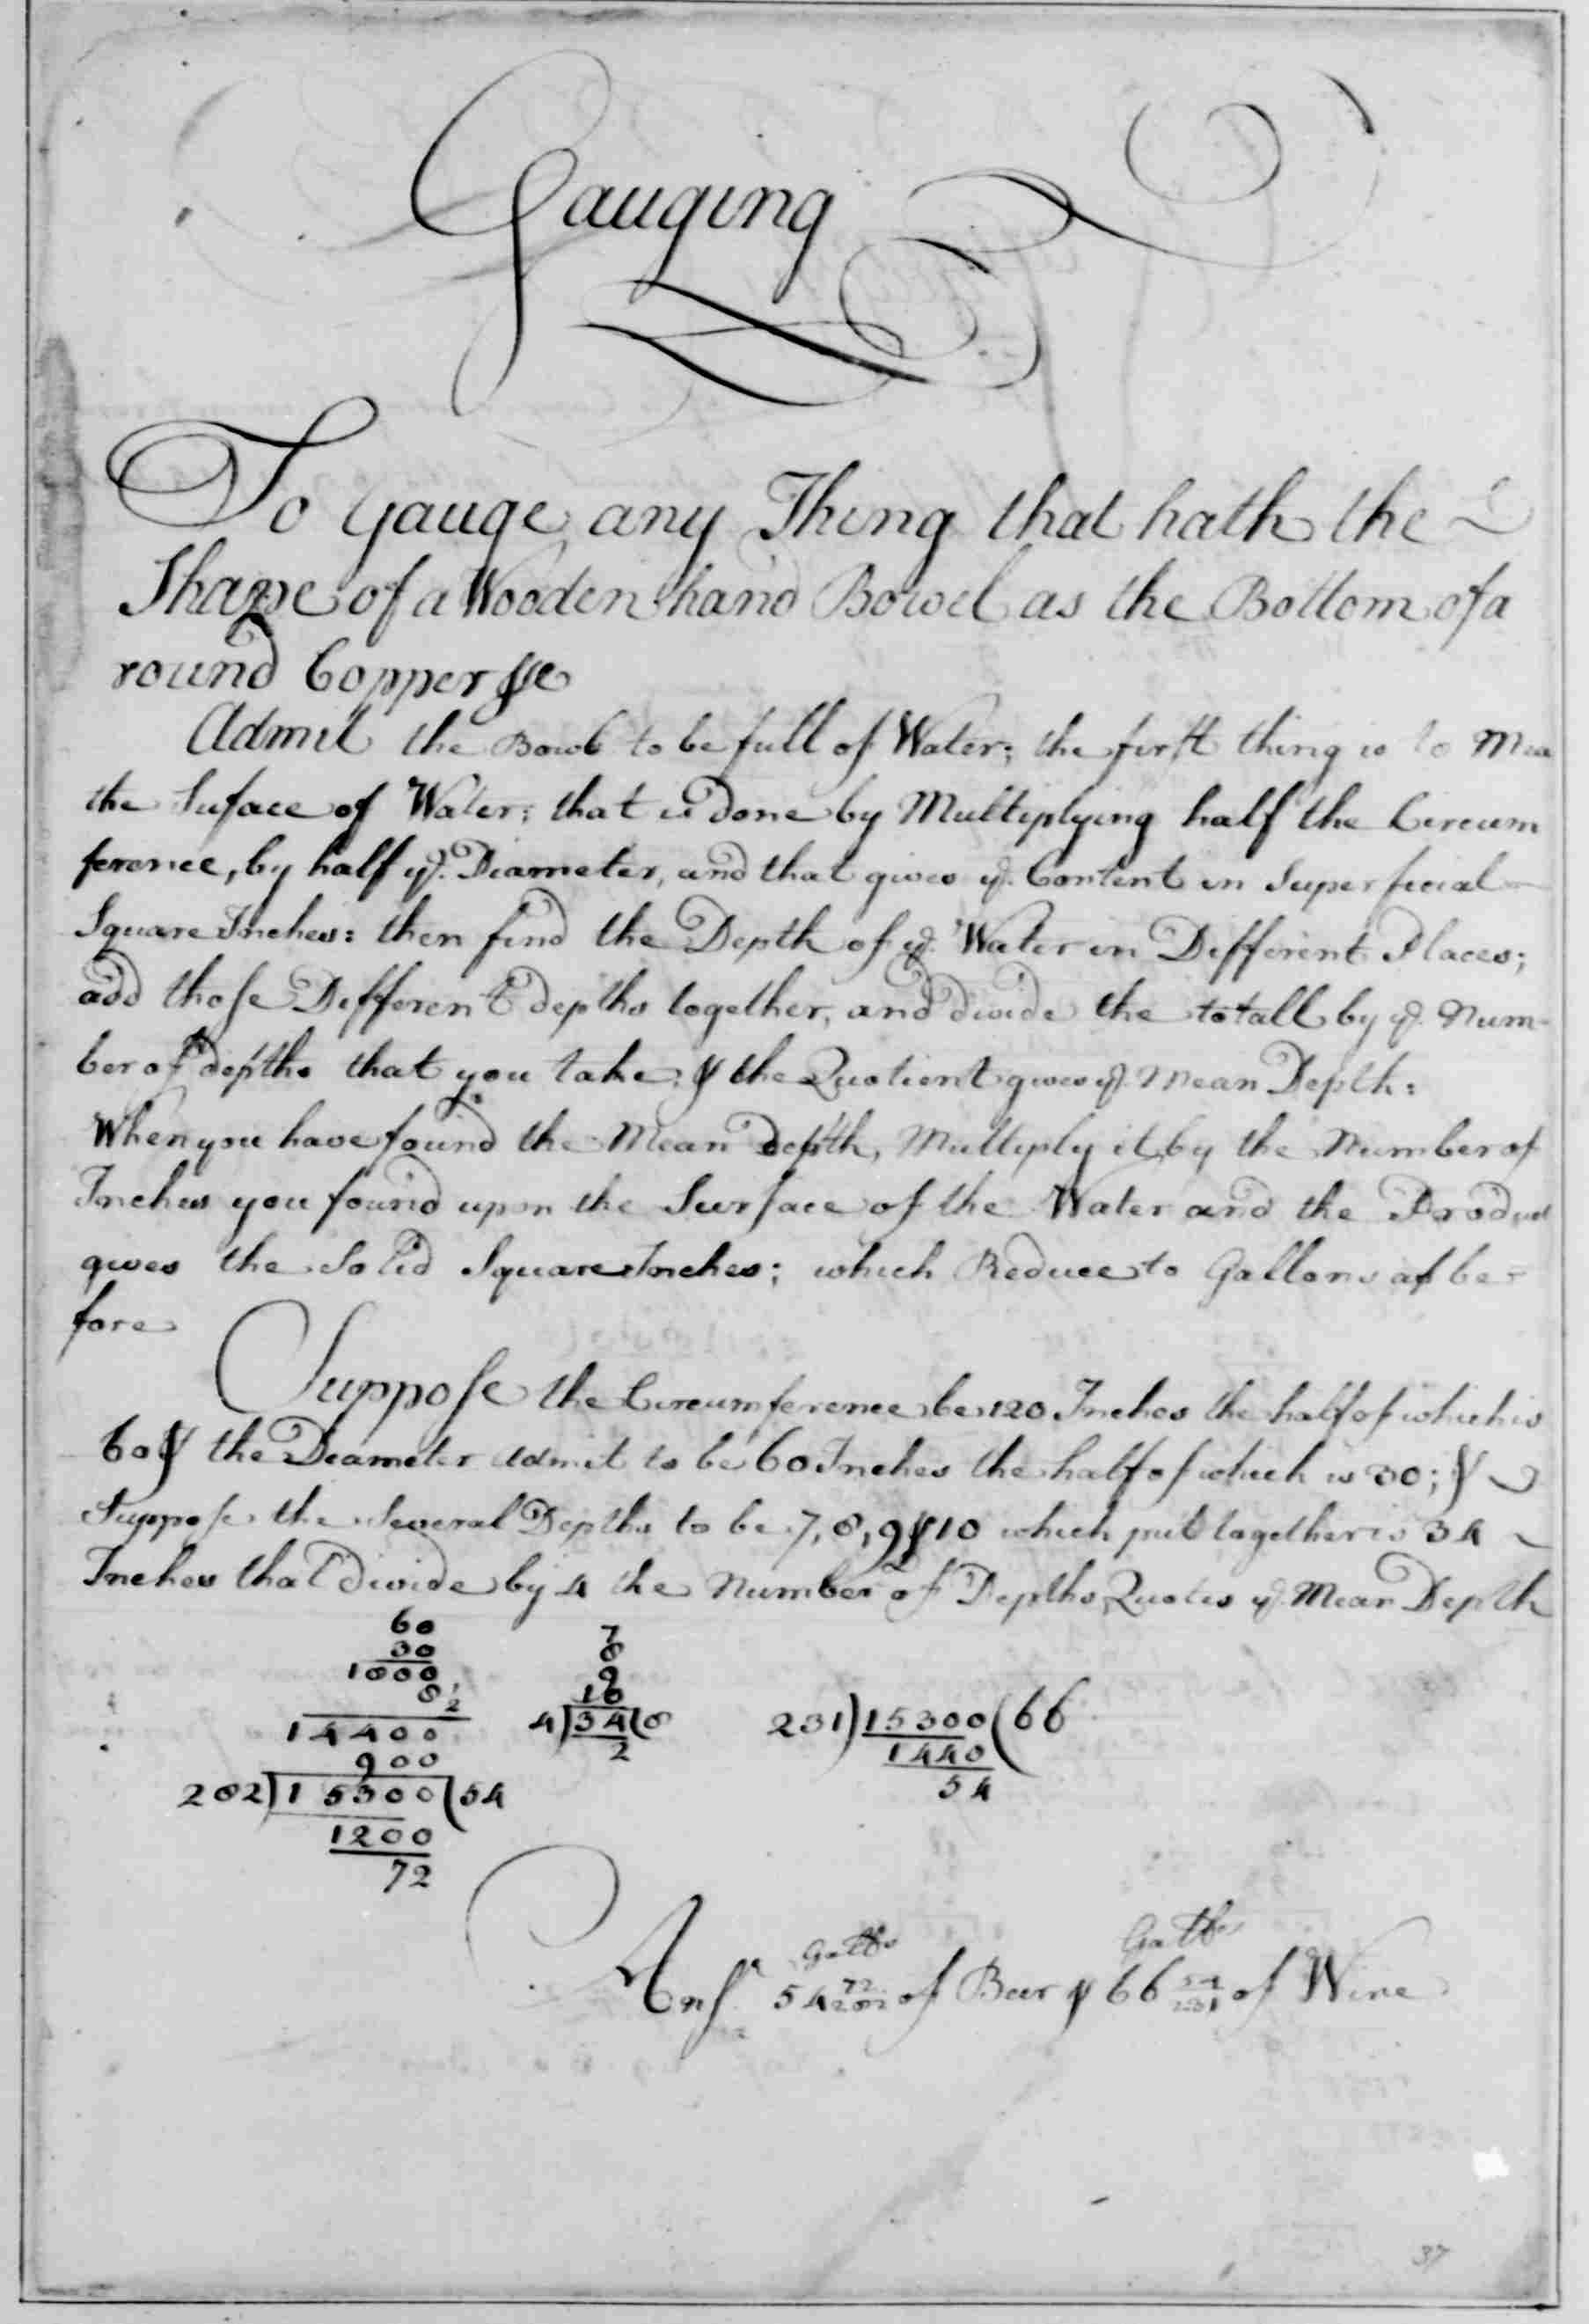 Gauging
To Gauge any Thing that hath the
Shape of a Wooden hand Bowel as the Bottom of a
round Copper &c
Admit the Bowl to be full of Water; the first thing is to Mea
the Suface of Water; that is done by Multiplying half the Circum
ference, by half ye. Diameter, and that gives ye. Content in Superficial
Square Inches: then find the Depth of ye. Water in Different Places;
add those Different depths together, and divide the totall by ye. Num-
ber of depths that you take; & the Quotient gives ye. Mean Depth:
When you have found the Mean depth, Multiply it by the Number of
Inches you found upon the Surface of the Water and the Product
gives the Solid Square Inches; which Reduce to Gallons as be-
fore
Suppose the Circumference be 120 Inches the half of which is
60 & the Diameter admit to be 60 Inches the half of which is 30; &
Suppose the Several Depths to be 7, 8, 9 & 10 which put together is 34
Inches that divide by 4 the Number of Depths Quotes ye. Mean Depth
60
30
1800
8 1/2
14400
900
282)15300(54
1200
72
7
8
9
10
4)34(8
2
231)15300(66
1440
54
Galls Galls
Ansr. 54 72/282 of Beer & 66 54/231 of Wine
37